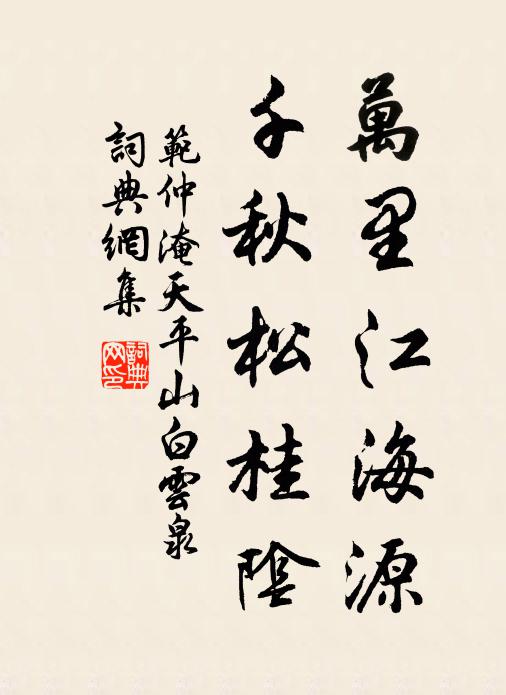 萬里江海源
千秋松桂陰
範仲淹天平山白雲泉
詞典網集
詞典網印